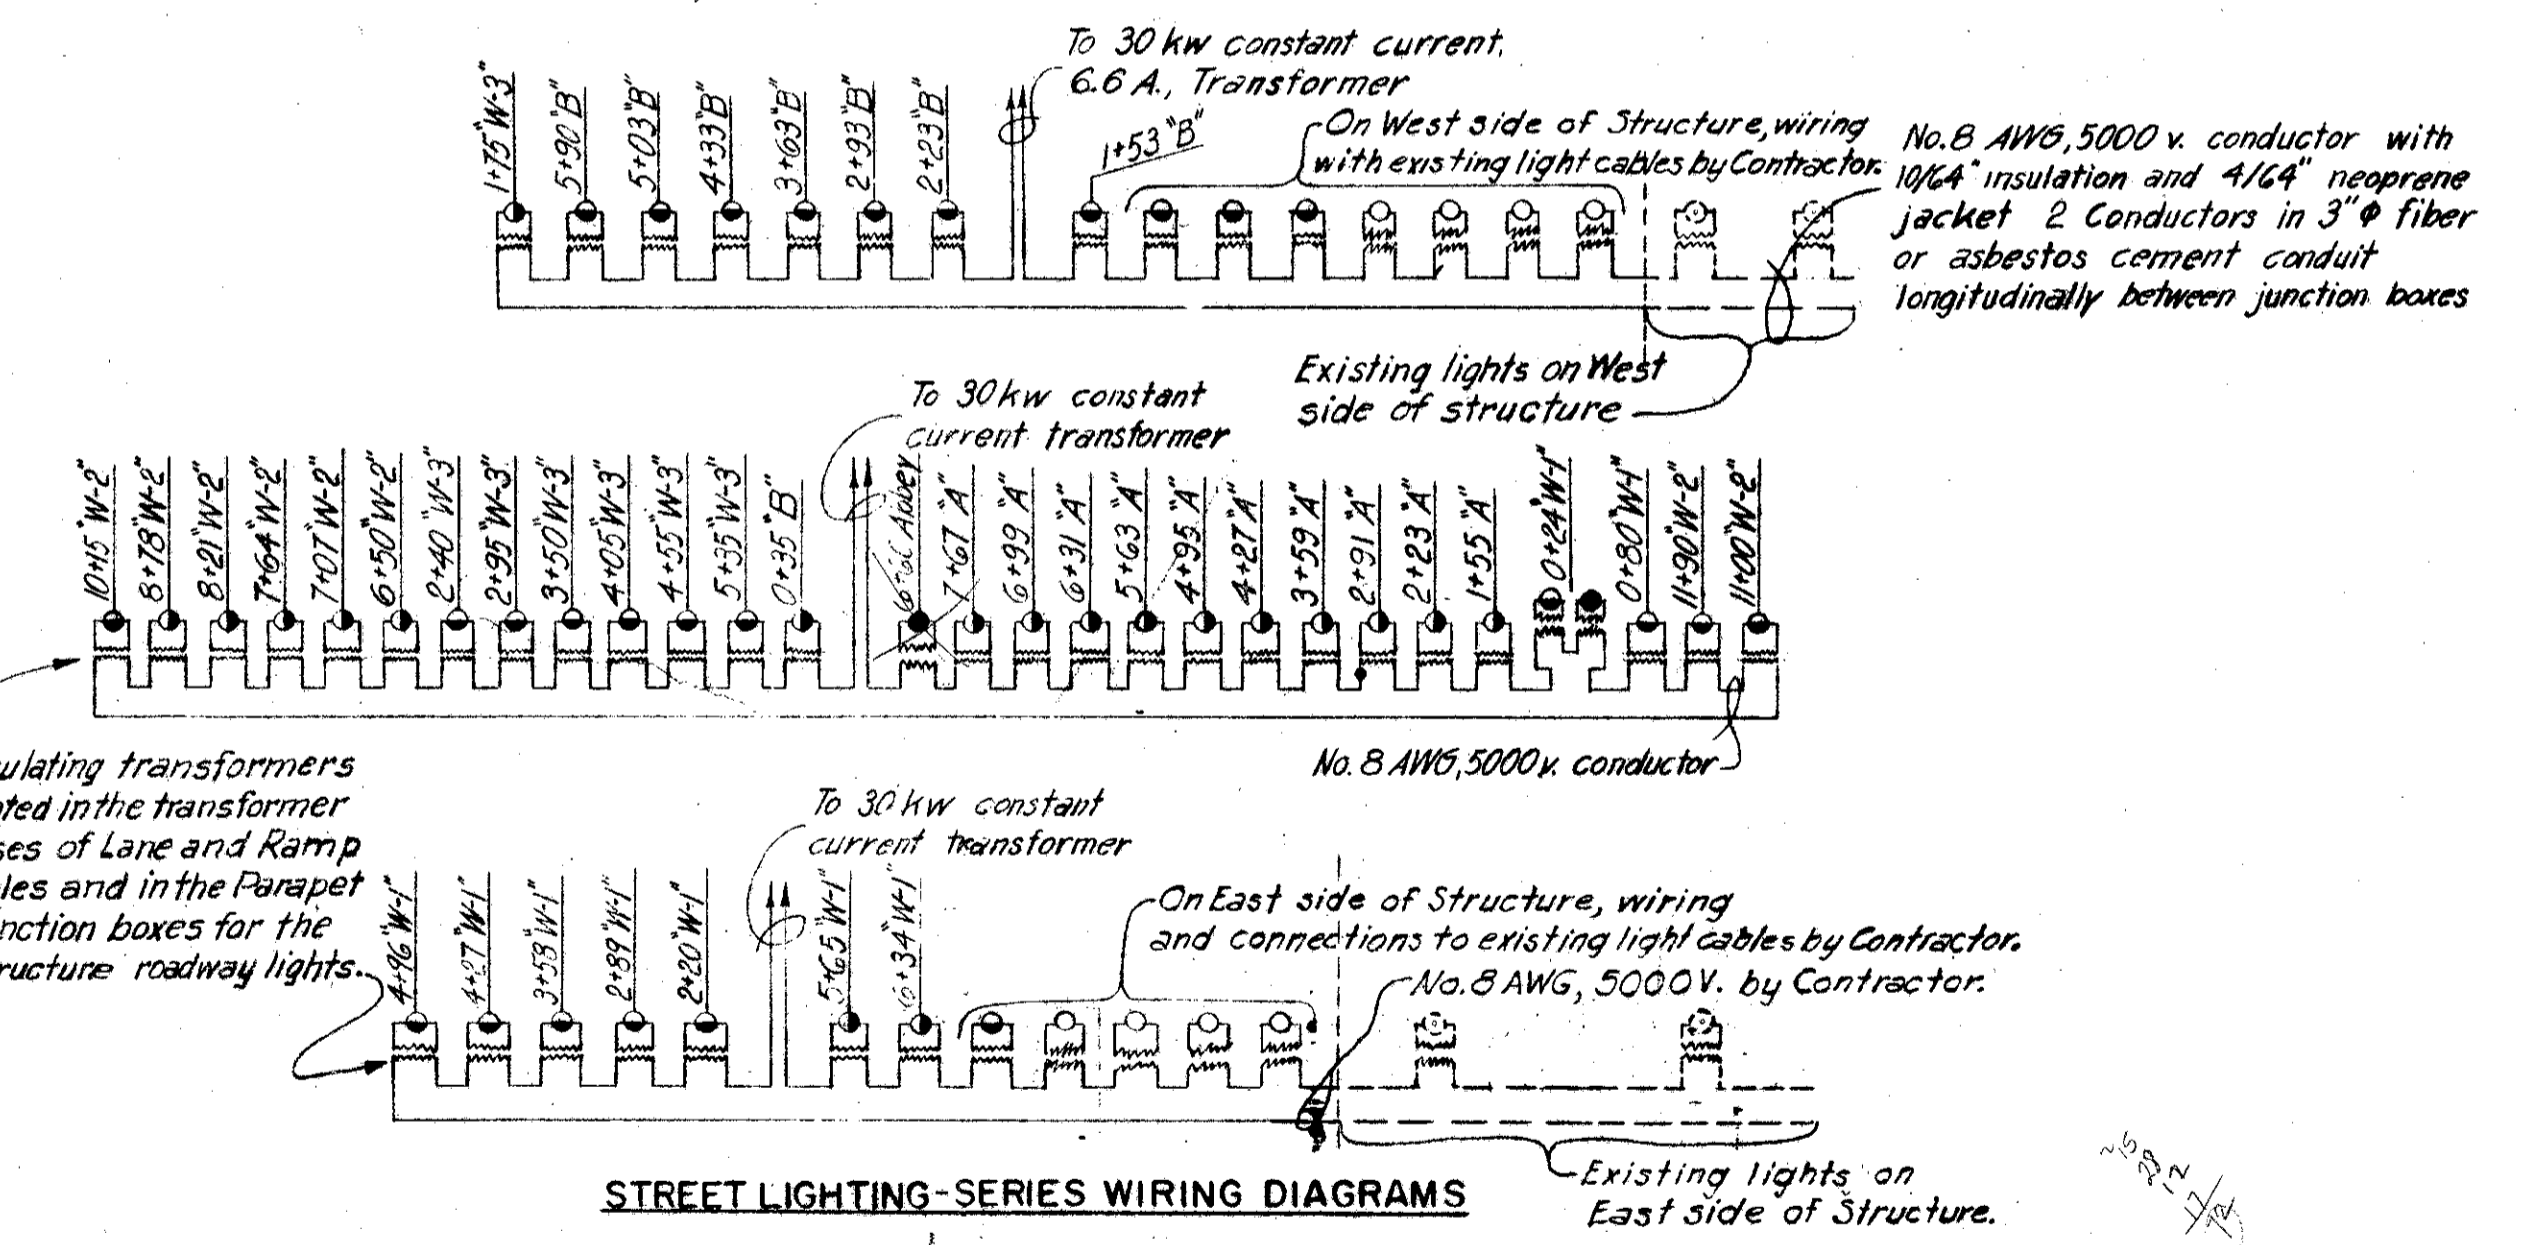 To 30 kw constant current,
6.6 A., Transformer
1+75"W-3"
5+90"B"
5+03"B"
4+33"B"
3+63"B"
2+93"B"
2+23"B"
1+53"B"
On West side of Structure, wiring
with existing light cables by Contractor.
No.8 AWG, 5000 v. conductor with
10/64" insulation and 4/64" neoprene
jacket 2 Conductors in 3"Φ fiber
or asbestos cement conduit
longitudinally between junction boxes
Existing lights on West
side of structure
To 30 kw constant
current transformer
10+15"W-2"
8+78"W-2"
8+21"W-2"
7+64"W-2"
7+07"W-2"
6+50"W-2"
2+40"W-3"
2+95"W-3"
3+50"W-3"
4+05"W-3"
4+55"W-3"
5+35"W-3"
0+35"B"
7+67"A"
6+99"A"
6+31"A"
5+63"A"
4+95"A"
4+27"A"
3+59"A"
2+91"A"
2+23"A"
1+55"A"
0+24"W-1"
0+80"W-1"
11+90"W-2"
11+00"W-2"
No. 8 AWG, 5000 v. conductor
ulating transformers
ted in the transformer
ses of Lane and Ramp
les and in the Parapet
nction boxes for the
ructure roadway lights.
To 30 kw constant
current transformer
4+96"W-1"
4+27"W-1"
3+58"W-1"
2+89"W-1"
2+20"W-1"
5+65"W-1"
6+34"W-1"
On East side of Structure, wiring
and connections to existing light cables by Contractor.
No. 8 AWG, 5000V. by Contractor.
Existing lights on
East side of Structure.
STREET LIGHTING-SERIES WIRING DIAGRAMS